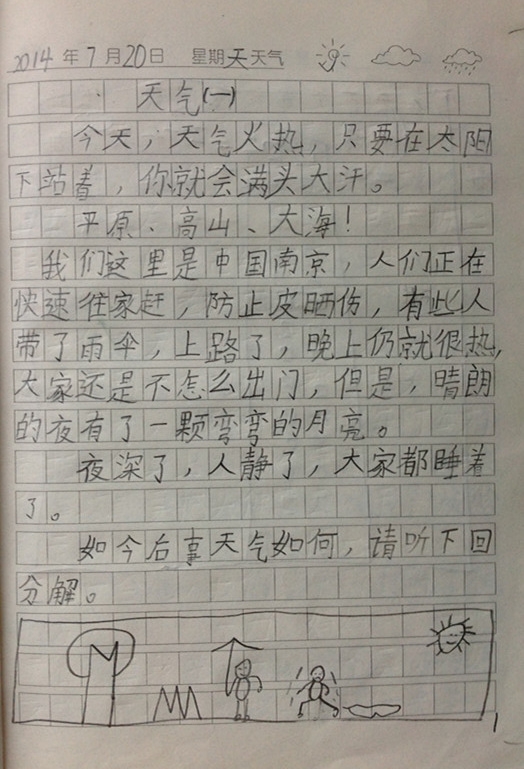 2014年7月20日 星期天天气
天气(一)
今天,天气火热,只要在太阳
下站着,你就会满头大汗。
平原、高山、大海!
我们这里是中国南京,人们正在
快速往家赶,防止皮晒伤,有些人
带了雨伞,上路了,晚上仍就很热,
大家还是不怎么出门,但是,晴朗
的夜有了一颗弯弯的月亮。
夜深了,人静了,大家都睡着
了。
如今后事天气如何,请听下回
分解。